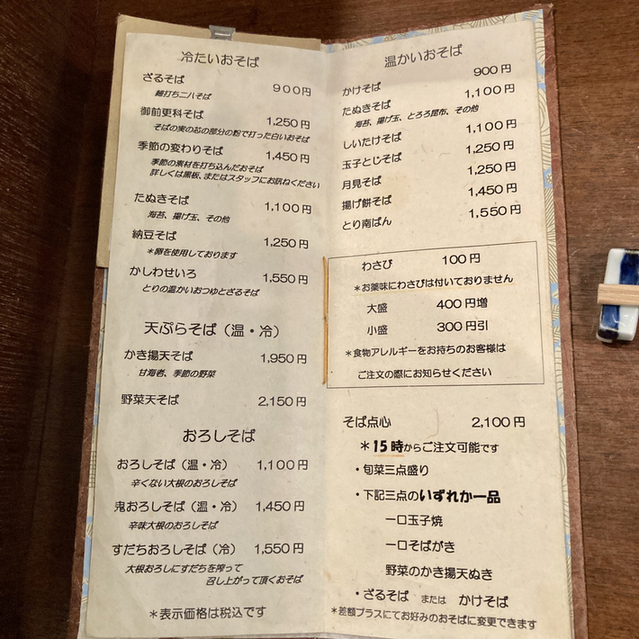 冷たいおそば
ざるそば 900円
細打ち二八そば
御前更科そば 1,250円
そばの実の芯の部分の粉で打った白いおそば
季節の変わりそば 1,450円
季節の素材を打ち込んだおそば
詳しくは黒板、またはスタッフにお訊ねください
たぬきそば 1,100円
海苔、揚げ玉、その他
納豆そば 1,250円
＊卵を使用しております
かしわせいろ 1,550円
とりの温かいおつゆとざるそば
天ぷらそば（温・冷）
かき揚天そば 1,950円
甘海老、季節の野菜
野菜天そば 2,150円
おろしそば
おろしそば（温・冷） 1,100円
辛くない大根のおろしそば
鬼おろしそば（温・冷） 1,450円
辛味大根のおろしそば
すだちおろしそば（冷） 1,550円
大根おろしにすだちを搾って
召し上がって頂くおそば
＊表示価格は税込です
温かいおそば
かけそば 900円
たぬきそば 1,100円
海苔、揚げ玉、とろろ昆布、その他
しいたけそば 1,100円
玉子とじそば 1,250円
月見そば 1,250円
揚げ餅そば 1,450円
とり南ばん 1,550円
わさび 100円
＊お薬味にわさびは付いておりません
大盛 400円増
小盛 300円引
＊食物アレルギーをお持ちのお客様は
ご注文の際にお知らせください
そば点心 2,100円
＊15時からご注文可能です
・旬菜三点盛り
・下記三点のいずれか一品
一口玉子焼
一口そばがき
野菜のかき揚天ぬき
・ざるそば または かけそば
＊差額プラスにてお好みのおそばに変更できます